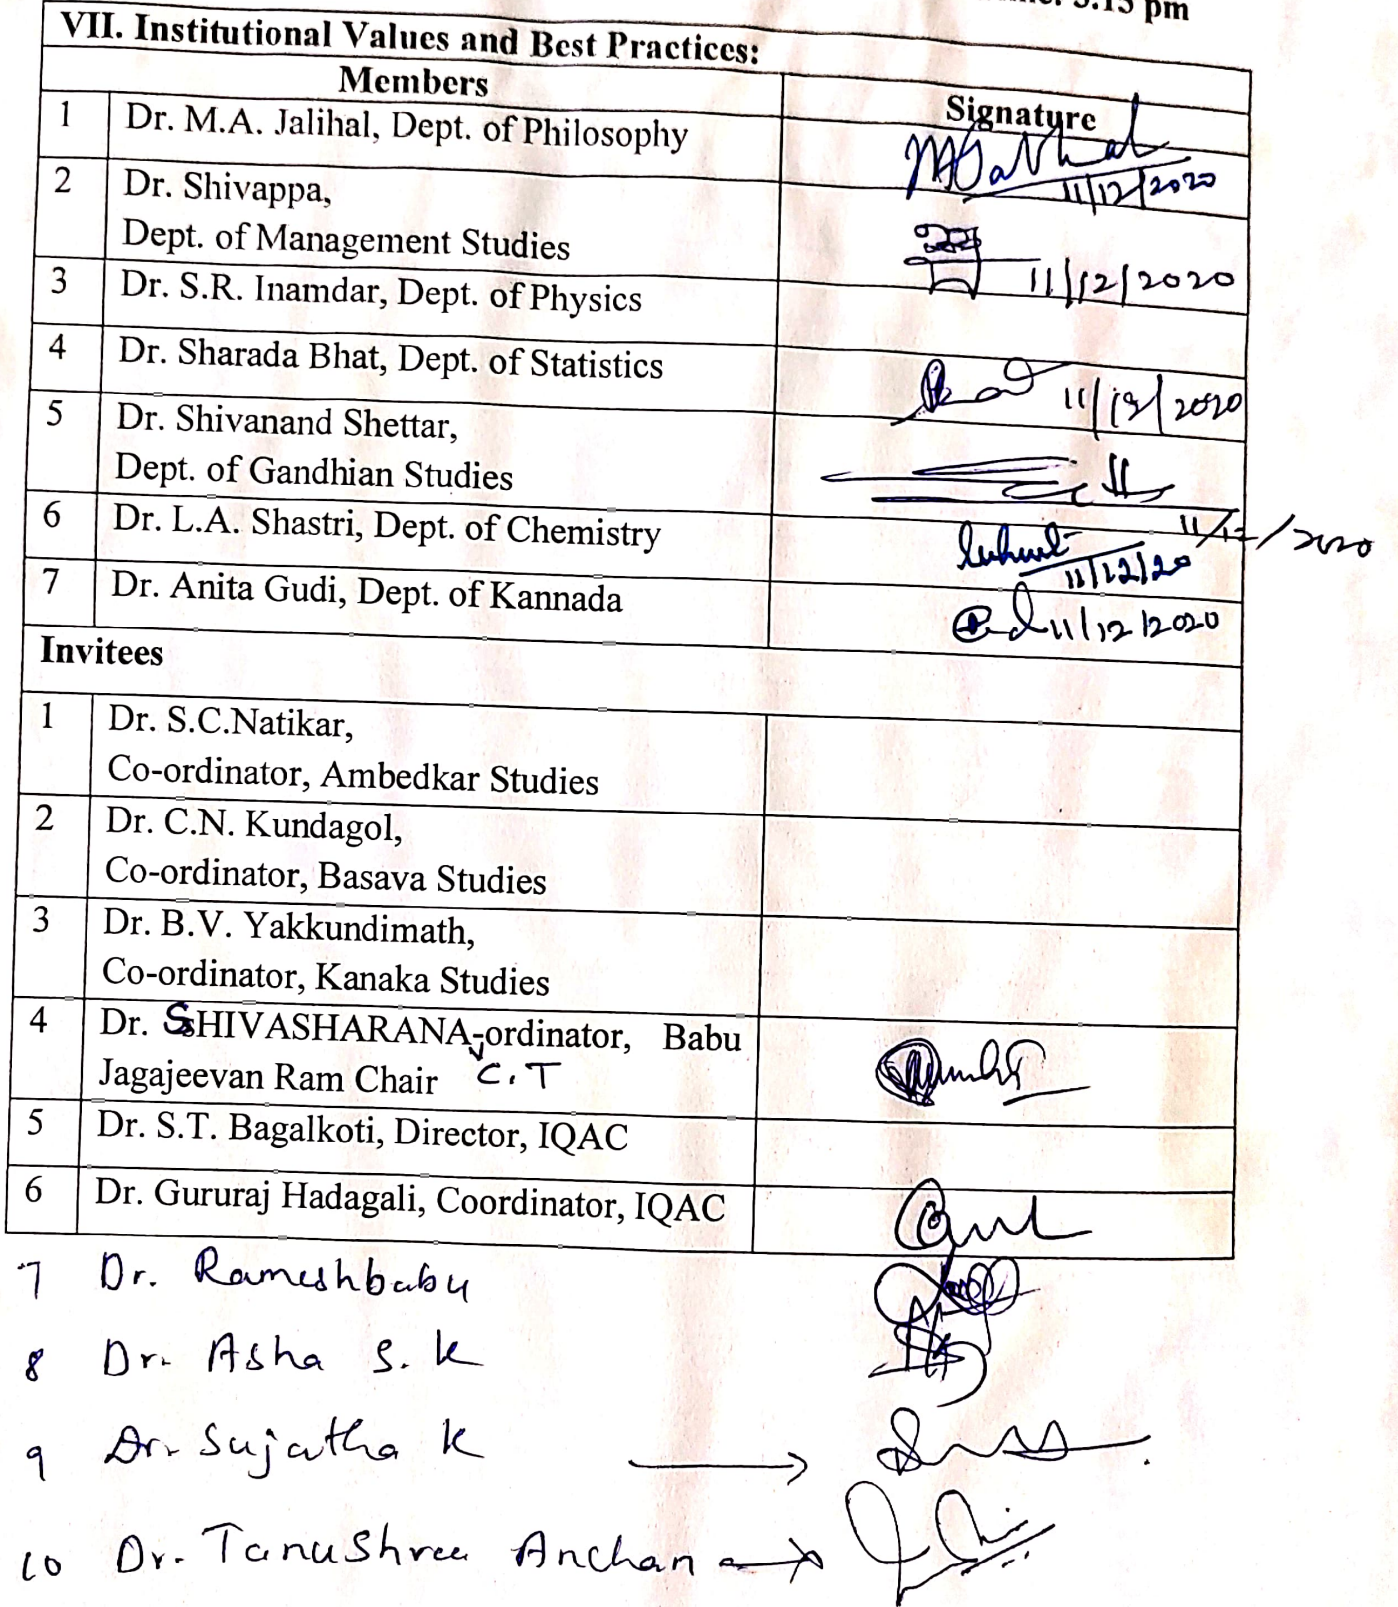 3.15 pm
VII. Institutional Values and Best Practices:
Members
Signature
1 Dr. M.A. Jalihal, Dept. of Philosophy
11/12/2020
2 Dr. Shivappa,
Dept. of Management Studies
11/12/2020
3 Dr. S.R. Inamdar, Dept. of Physics
4 Dr. Sharada Bhat, Dept. of Statistics
11/12/2020
5 Dr. Shivanand Shettar,
Dept. of Gandhian Studies
11/12/2020
6 Dr. L.A. Shastri, Dept. of Chemistry
11/12/20
7 Dr. Anita Gudi, Dept. of Kannada
11/12/2020
Invitees
1 Dr. S.C.Natikar,
Co-ordinator, Ambedkar Studies
2 Dr. C.N. Kundagol,
Co-ordinator, Basava Studies
3 Dr. B.V. Yakkundimath,
Co-ordinator, Kanaka Studies
4 Dr. SHIVASHARANA-ordinator, Babu
Jagajeevan Ram Chair C.T
5 Dr. S.T. Bagalkoti, Director, IQAC
6 Dr. Gururaj Hadagali, Coordinator, IQAC
7 Dr. Rameshbabu
8 Dr. Asha S. K
9 Dr. Sujatha K
10 Dr. Tanushree Anchan